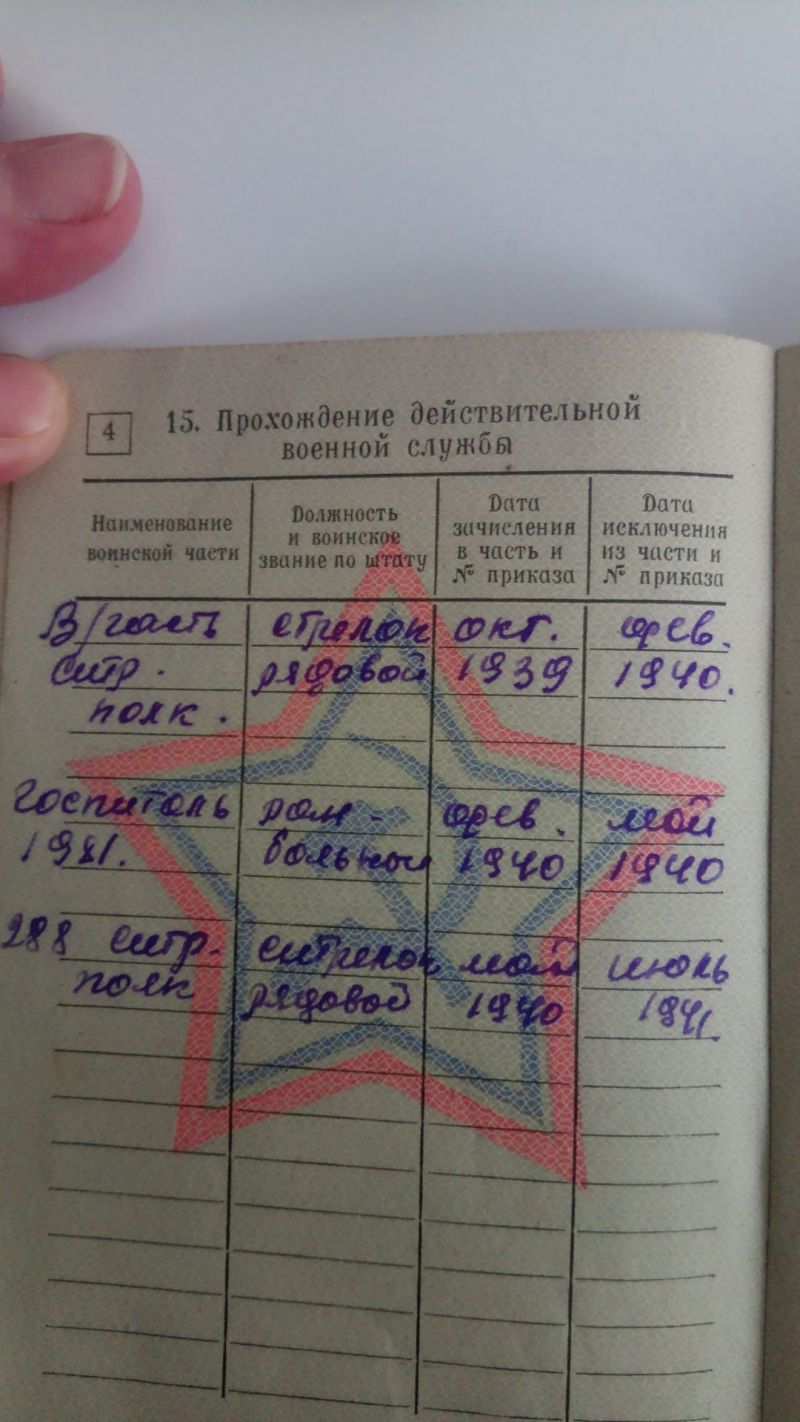 4
15. Прохождение действительной
военной службы
Наименование
воинской части
Должность
и воинское
звание по штату
Дата
зачисления
в часть и
№ приказа
Дата
исключения
из части и
№ приказа
В/часть стрелок окт. фев.
стр. рядовой 1939 1940.
полк.
Госпиталь ран- фев. май
больной 1940 1940
288 стр. стрелок май июль
полк рядовой 1940 1941.